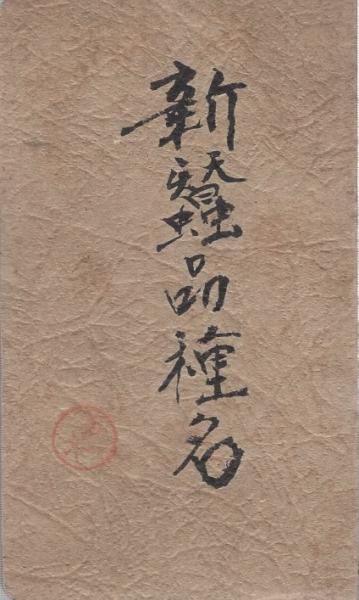 新蚕品種名